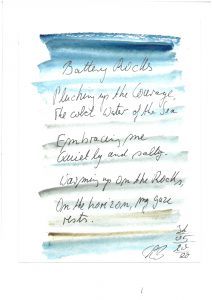 Battery Rocks
Plucking up the Courage,
The cold water of the Sea
Embracing me
Quietly and salty.
Warming up on the Rocks,
On the horizon, my gaze
rests.